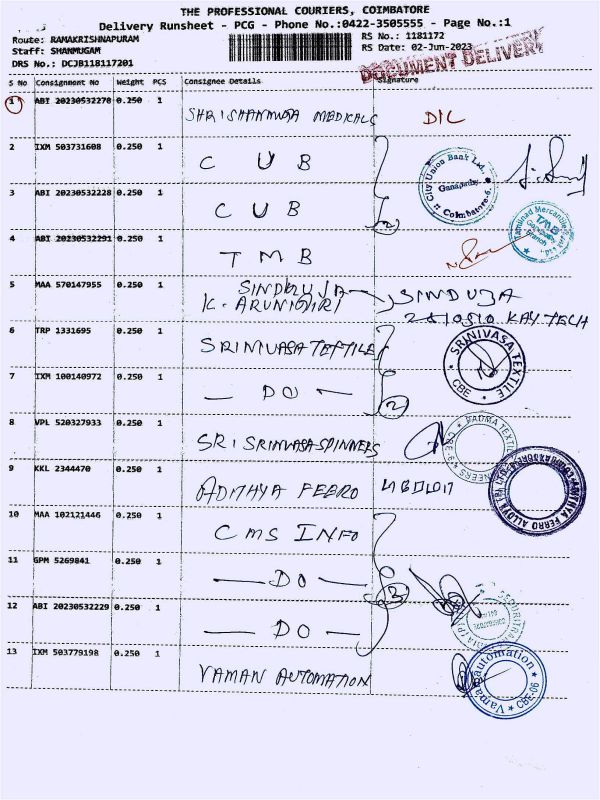 THE PROFESSIONAL COURIERS, COIMBATORE
Delivery Runsheet - PCG - Phone No.:0422-3505555 - Page No.:1
Route: RAMAKRISHNAPURAM
Staff: SHANMUGAM
DRS No.: DCJB118117201
RS No.: 1181172
RS Date: 02-Jun-2023
DOCUMENT DELIVERY
S No Consignment No Weight PCS Consignee Details Signature
1 ABI 20230532270 0.250 1 SHRI SHANMUGA MEDICALS D/L
2 IXM 503731608 0.250 1 C U B
City Union Bank Ltd., Ganapathy Coimbatore-6
3 ABI 20230532228 0.250 1 C U B 2
4 ABI 20230532291 0.250 1 T M B
Tamilnad Mercantile TMB Ganapathy Branch
5 MAA 570147955 0.250 1 SINDHUJA SINDUJA
K. ARUNGIRI KAY TECH
6 TRP 1331695 0.250 1 SRINIVASA TEXTILE
SRINIVASA TEXTILE CBE
7 IXM 100140972 0.250 1 — DO — 2
8 VPL 520327933 0.250 1 SRI SRINIVASA SPINNERS
PADMA TEXTILE
9 KKL 2344470 0.250 1 ADITHYA FERRO
ADITHYA FERRO ALLOYS
10 MAA 102121446 0.250 1 CMS INFO
11 GPM 5269841 0.250 1 — DO — 3
12 ABI 20230532229 0.250 1 — DO —
13 IXM 503779198 0.250 1 VAMAN AUTOMATION
Vaman automation CBE-06